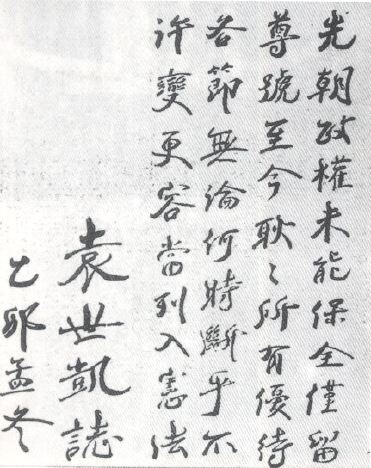 先朝政權未能保全僅留
尊號至今耿〻所有優待
各節無論何時斷乎不
許變更容當列入憲法
袁世凱誌
乙卯孟冬